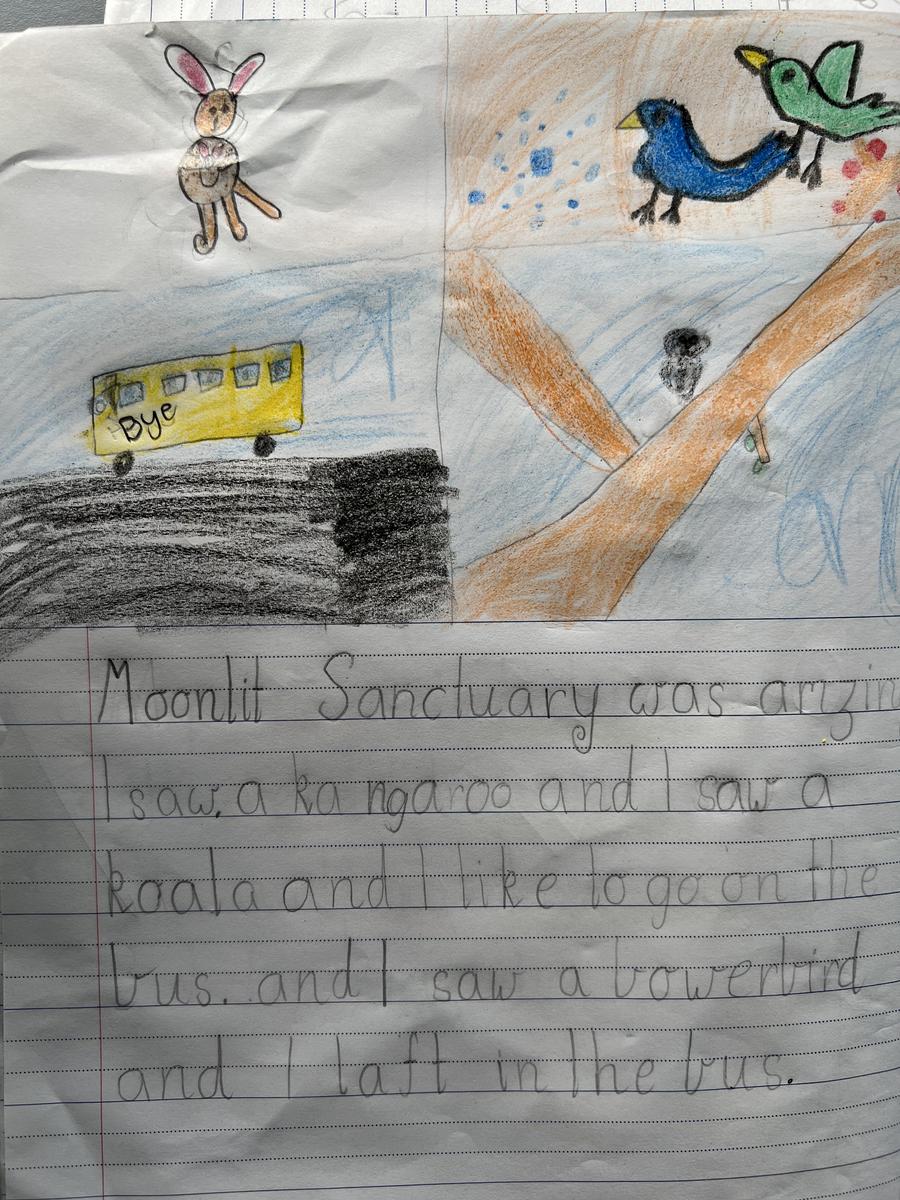 Bye
Moonlit Sanctuary was amzin
I saw. a kangaroo and I saw a
koala and I like to go on the
bus. and I saw a bowerbird
and I laft in the bus.